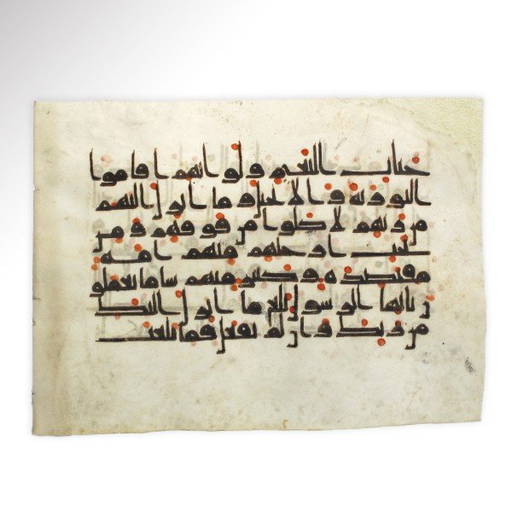 جنت النعيم ولو انهم اقاموا
التورية والانجيل وما انزل اليهم
من ربهم لاكلوا من فوقهم ومن
تحت ارجلهم منهم امة
مقتصدة وكثير منهم سا ما يعملو
ن يايها الرسول بلغ ما انزل اليك
من ربك وان لم تفعل فما بلغت